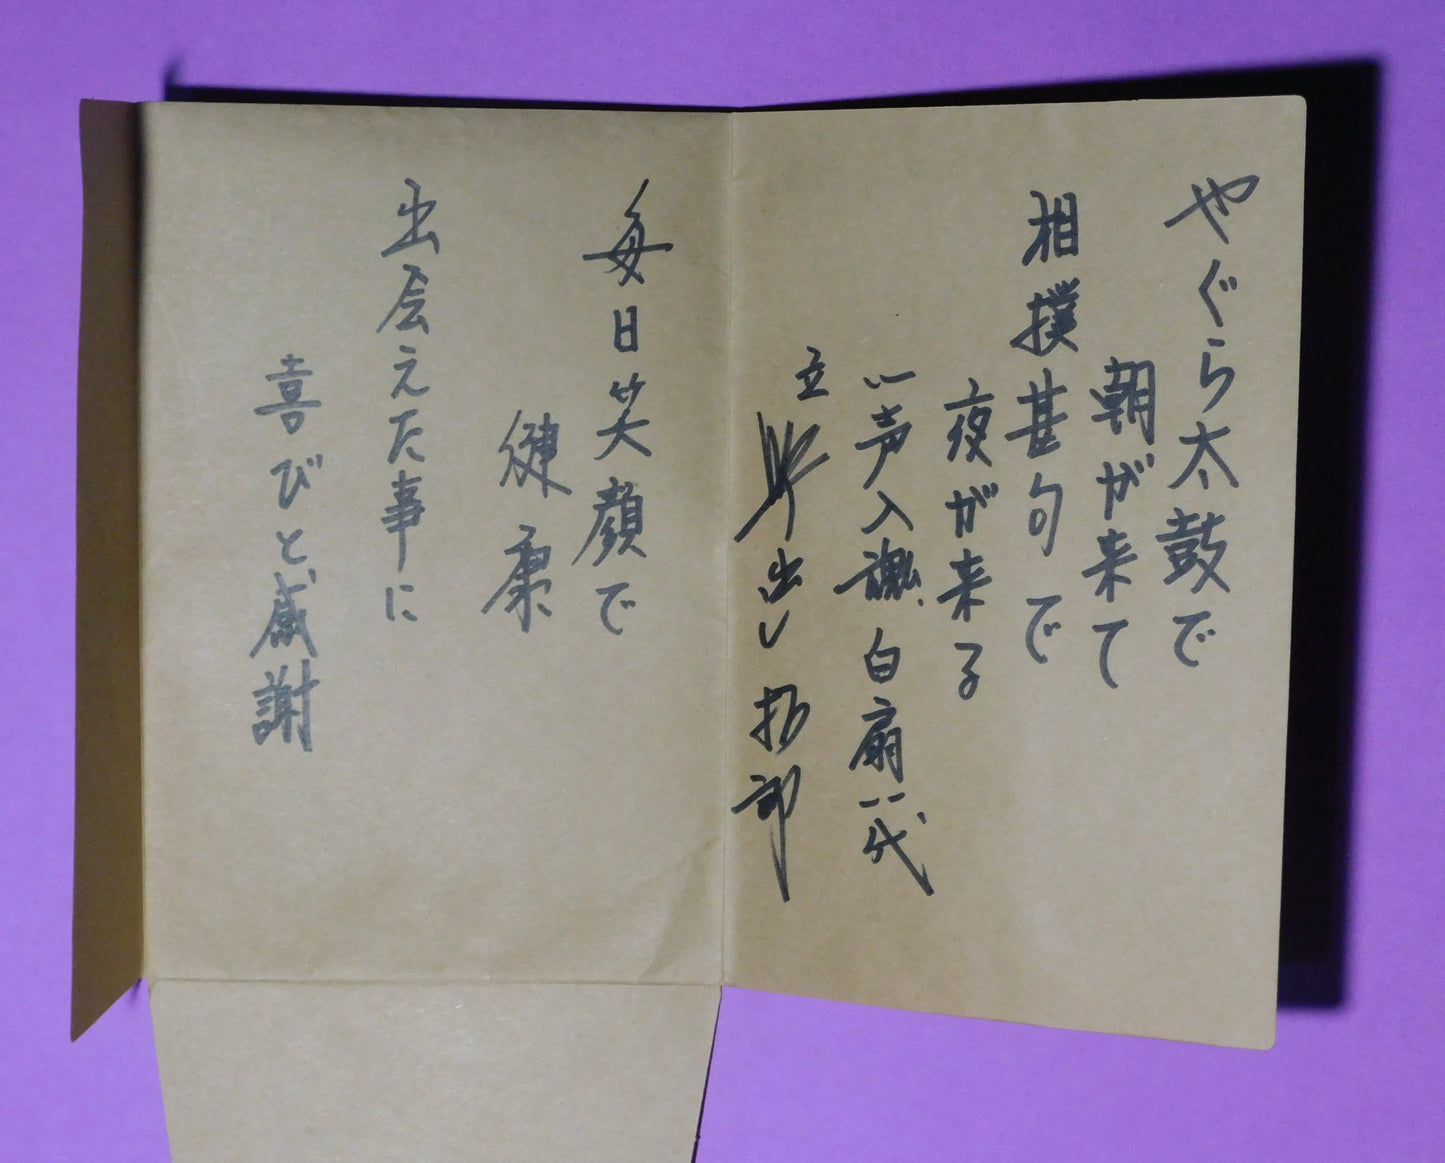 やぐら太鼓で
朝が来て
相撲甚句で
夜が来る
一声入魂 白扇一代
立呼出し 拓郎
毎日笑顔で
健康
出会えた事に
喜びと感謝